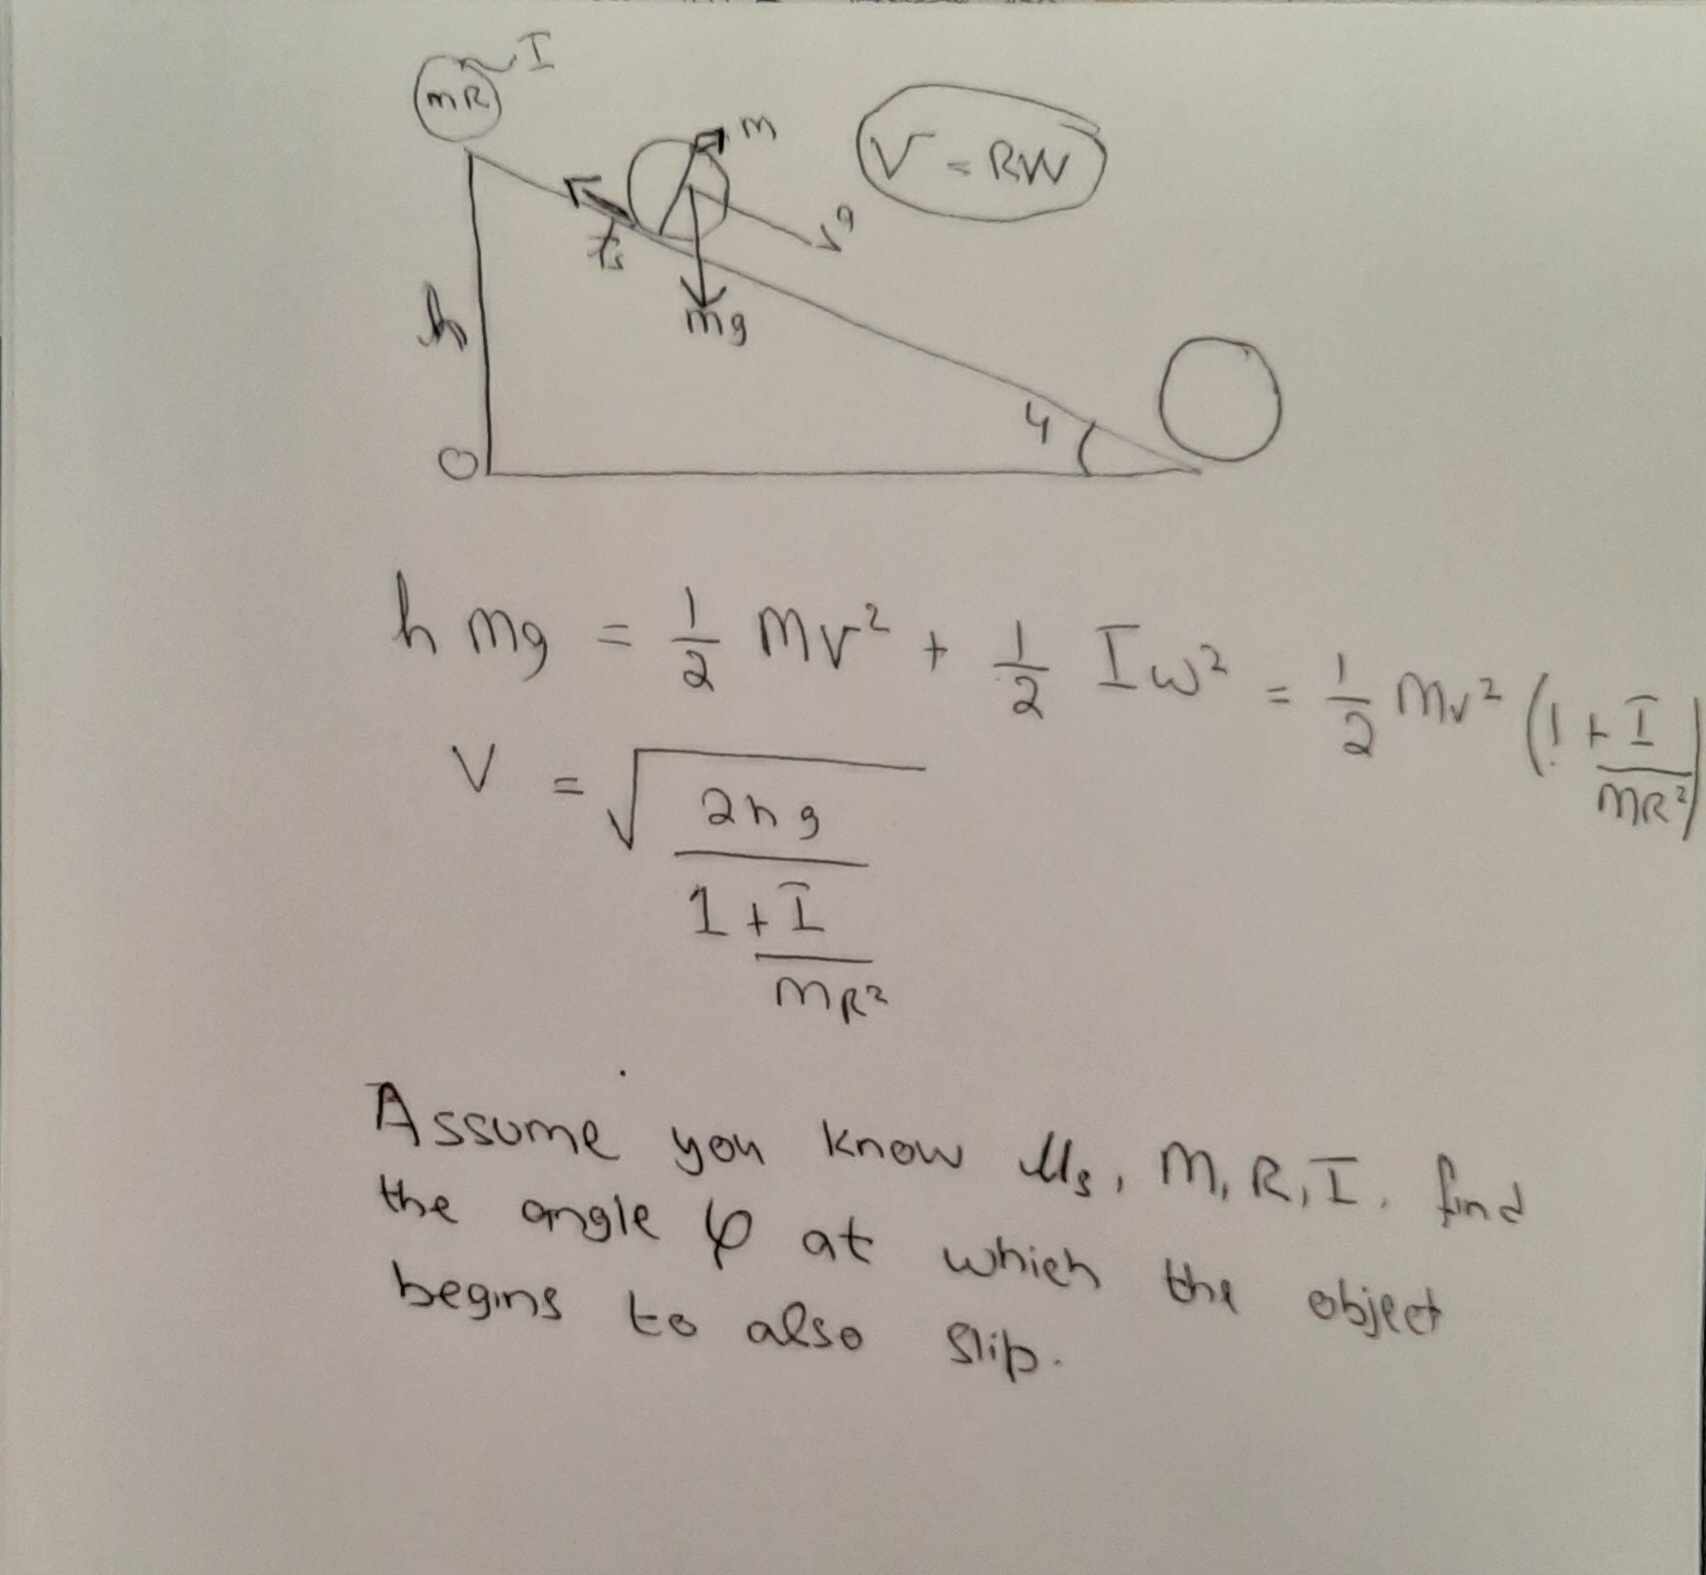 I
mR
m
V = RW
v?
fs
mg
h
φ
O
h mg = 1/2 mv² + 1/2 Iω² = 1/2 mv² (1 + I/mR²)
V = √(2hg/(1 + I/mR²))
Assume you know μs, m, R, I. find
the angle φ at which the object
begins to also slip.